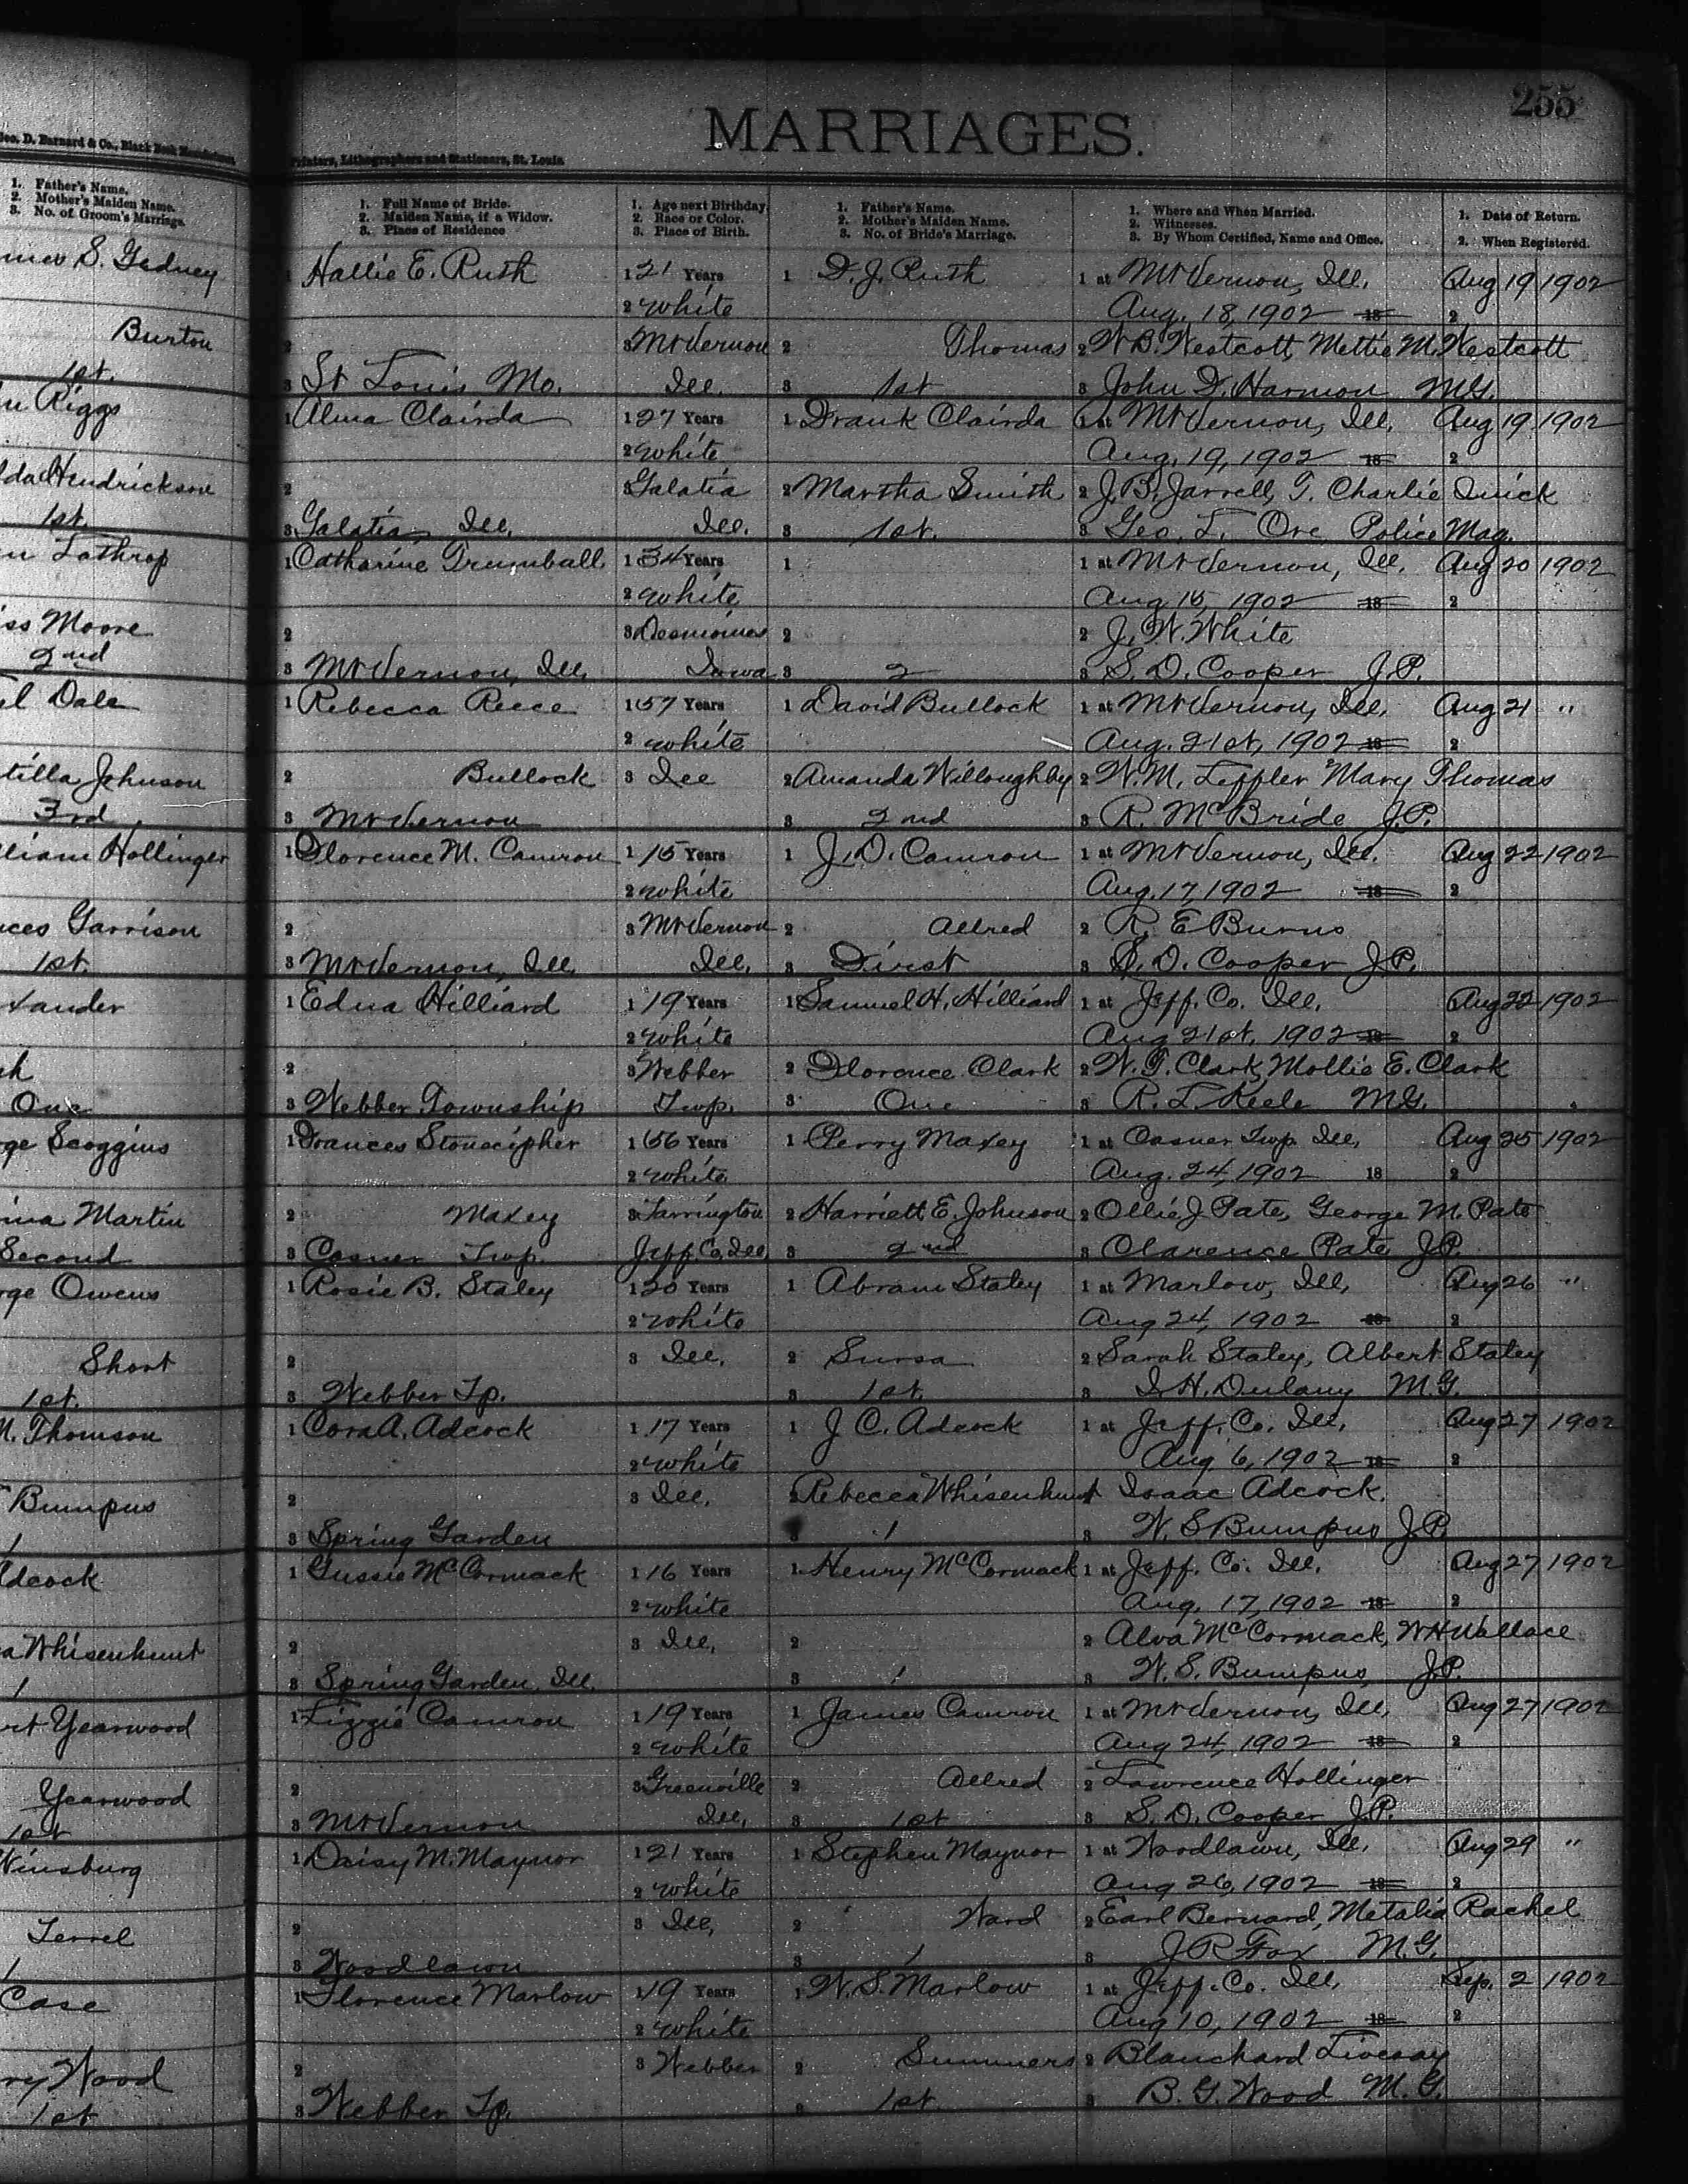 255
MARRIAGES.
Geo. D. Barnard & Co., Blank Book Manufacturers,
Printers, Lithographers and Stationers, St. Louis.
1. Father's Name.
2. Mother's Maiden Name.
3. No. of Groom's Marriage.
1. Full Name of Bride.
2. Maiden Name, if a Widow.
3. Place of Residence
1. Age next Birthday
2. Race or Color.
3. Place of Birth.
1. Father's Name.
2. Mother's Maiden Name.
3. No. of Bride's Marriage.
1. Where and When Married.
2. Witnesses.
3. By Whom Certified, Name and Office.
1. Date of Return.
2. When Registered.
S. Gedney 1 Hallie E. Ruth 1 21 Years 1 D. J. Ruth 1 at Mt Vernon, Ill. Aug 19 1902
2 White Aug. 18, 1902 18 2
Burton 2 3 Mt Vernon 2 Thomas 2 W. B. Westcott, Mettie M. Westcott
1st. 3 St Louis Mo. Ill. 3 1st 3 John D. Harmon M.G.
Riggs 1 Alma Clairda 1 27 Years 1 Frank Clairda 1 at Mt Vernon, Ill. Aug 19 1902
2 White Aug. 19, 1902 18 2
Hendrickson 2 3 Galatia 2 Martha Smith 2 J. B. Jarrell, T. Charlie Quick
1st. 3 Galatia Ill. Ill. 3 1st. 3 Geo. L. Orr Police Mag.
Lathrop 1 Catharine Trumball 1 34 Years 1 1 at Mt Vernon, Ill. Aug 20 1902
2 White Aug 15, 1902 18 2
Moore 2 3 Desmoines 2 2 J. W. White
2nd 3 Mt Vernon, Ill. Iowa 3 2 3 S. D. Cooper J.P.
Dale 1 Rebecca Reece 1 57 Years 1 David Bullock 1 at Mt Vernon, Ill. Aug 21 "
2 White Aug. 21st, 1902 18 2
tilla Johnson 2 Bullock 3 Ill 2 Amanda Willoughby 2 W. M. Leffler Mary Thomas
3rd 3 Mt Vernon 3 2nd 3 R. McBride J.P.
liam Hollinger 1 Florence M. Camron 1 15 Years 1 J. D. Camron 1 at Mt Vernon, Ill. Aug 22 1902
2 White Aug. 17, 1902 18 2
ces Garrison 2 3 Mt Vernon 2 Allred 2 R. E Burns
1st. 3 Mt Vernon, Ill. Ill. 3 First 3 S. D. Cooper J.P.
xander 1 Edna Hilliard 1 19 Years 1 Samuel H. Hilliard 1 at Jeff. Co. Ill. Aug 22 1902
2 White Aug 21st, 1902 18 2
2 3 Webber 2 Florence Clark 2 W. T. Clark, Mollie E. Clark
One 3 Webber Township Twp. 3 One 3 R. L. Keele M.G.
ge Scoggins 1 Frances Stonecipher 1 56 Years 1 Perry Maxey 1 at Casner Twp. Ill. Aug 25 1902
2 White Aug. 24, 1902 18 2
Martin 2 Maxey 3 Farrington 2 Harriett E. Johnson 2 Ollie J Pate, George M. Pate
Second 3 Casner Twp. Jeff. Co. Ill. 3 2nd 3 Clarence Pate J.P.
ge Owens 1 Rosie B. Staley 1 20 Years 1 Abram Staley 1 at Marlow, Ill. Aug 26 "
2 White Aug 24, 1902 18 2
Short 2 3 Ill. 2 Sursa 2 Sarah Staley, Albert Staley
1st. 3 Webber Tp. 3 1st. 3 I. H. Dulany M.G.
Thomson 1 Cora A. Adcock 1 17 Years 1 J C. Adcock 1 at Jeff. Co. Ill. Aug 27 1902
2 White Aug. 6, 1902 18 2
Bumpus 2 3 Ill. 2 Rebecca Whisenhunt Isaac Adcock.
1 3 Spring Garden 3 1 3 W. S Bumpus J.P.
dcock 1 Gussie McCormack 1 16 Years 1 Henry McCormack 1 at Jeff. Co. Ill. Aug 27 1902
2 White Aug. 17, 1902 18 2
a Whisenhunt 2 3 Ill. 2 2 Alva McCormack, W H Wallace
1 3 Spring Garden, Ill. 3 1 3 W. S. Bumpus, J.P.
rt Yearwood 1 Lizzie Camron 1 19 Years 1 James Camron 1 at Mt Vernon, Ill. Aug 27 1902
2 White Aug 24, 1902 18 2
Yearwood 2 3 Greenville 2 Allred 2 Lawrence Hollinger
1st 3 Mt Vernon Ill. 3 1st 3 S. D. Cooper J.P.
Winsburg 1 Daisy M. Maynor 1 21 Years 1 Stephen Maynor 1 at Woodlawn, Ill. Aug 29 "
2 White Aug 26, 1902 18 2
Terrel 2 3 Ill. 2 Ward 2 Earl Bernard, Metalia Rachel
1 3 Woodlawn 3 1 3 J R Fox M.G.
Case 1 Florence Marlow 1 19 Years 1 W. S. Marlow 1 at Jeff. Co. Ill. Sep. 2 1902
2 White Aug 10, 1902 18 2
ry Wood 2 3 Webber 2 Summers 2 Blanchard Livesay
1st 3 Webber Tp. 3 1st 3 B. G. Wood M.G.